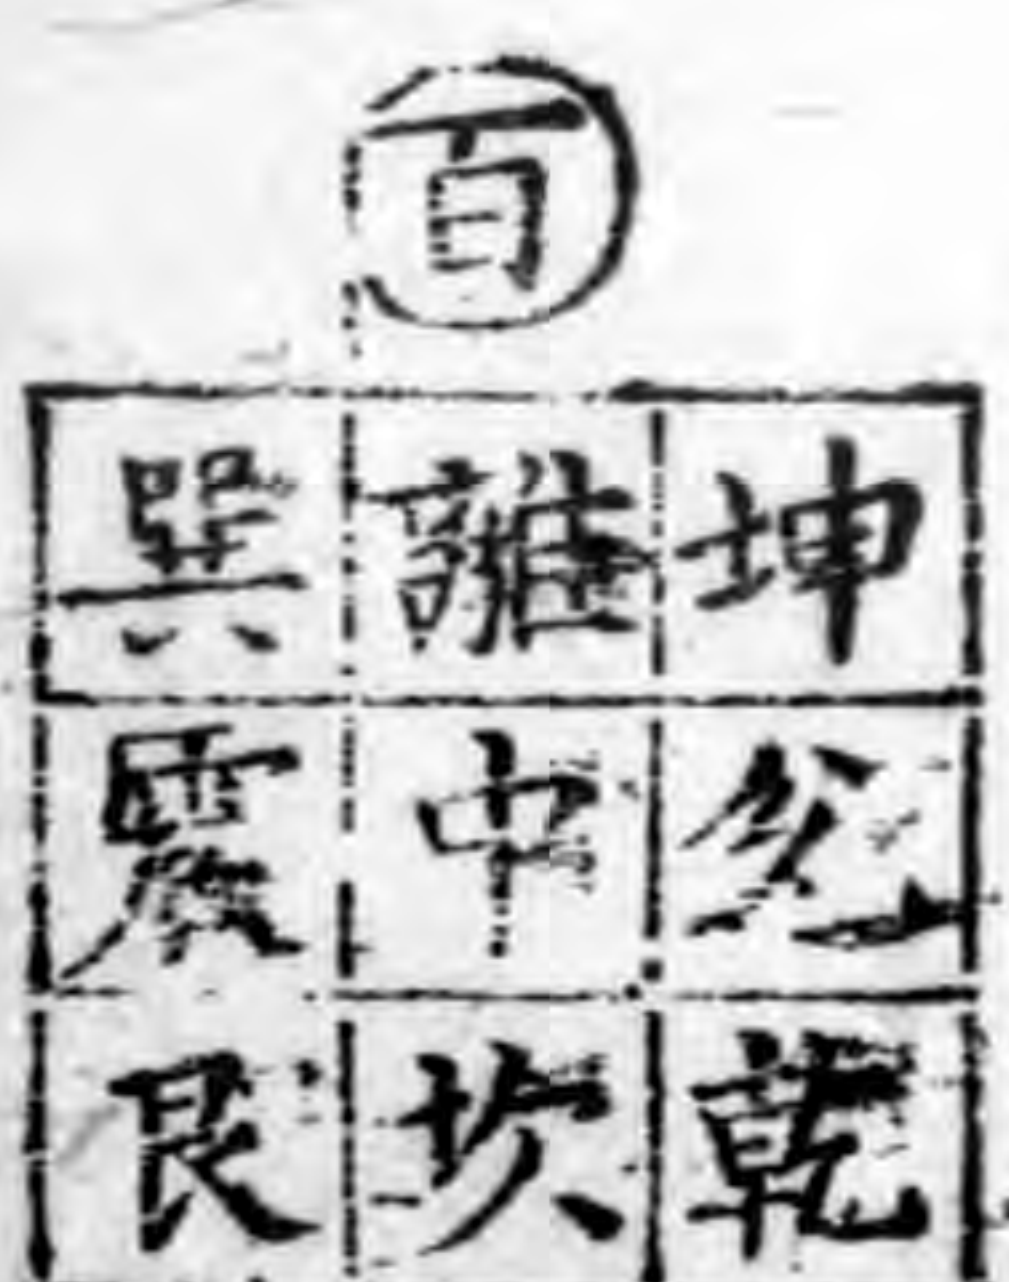 百
巽 離 坤
震 中 兊
艮 坎 乾